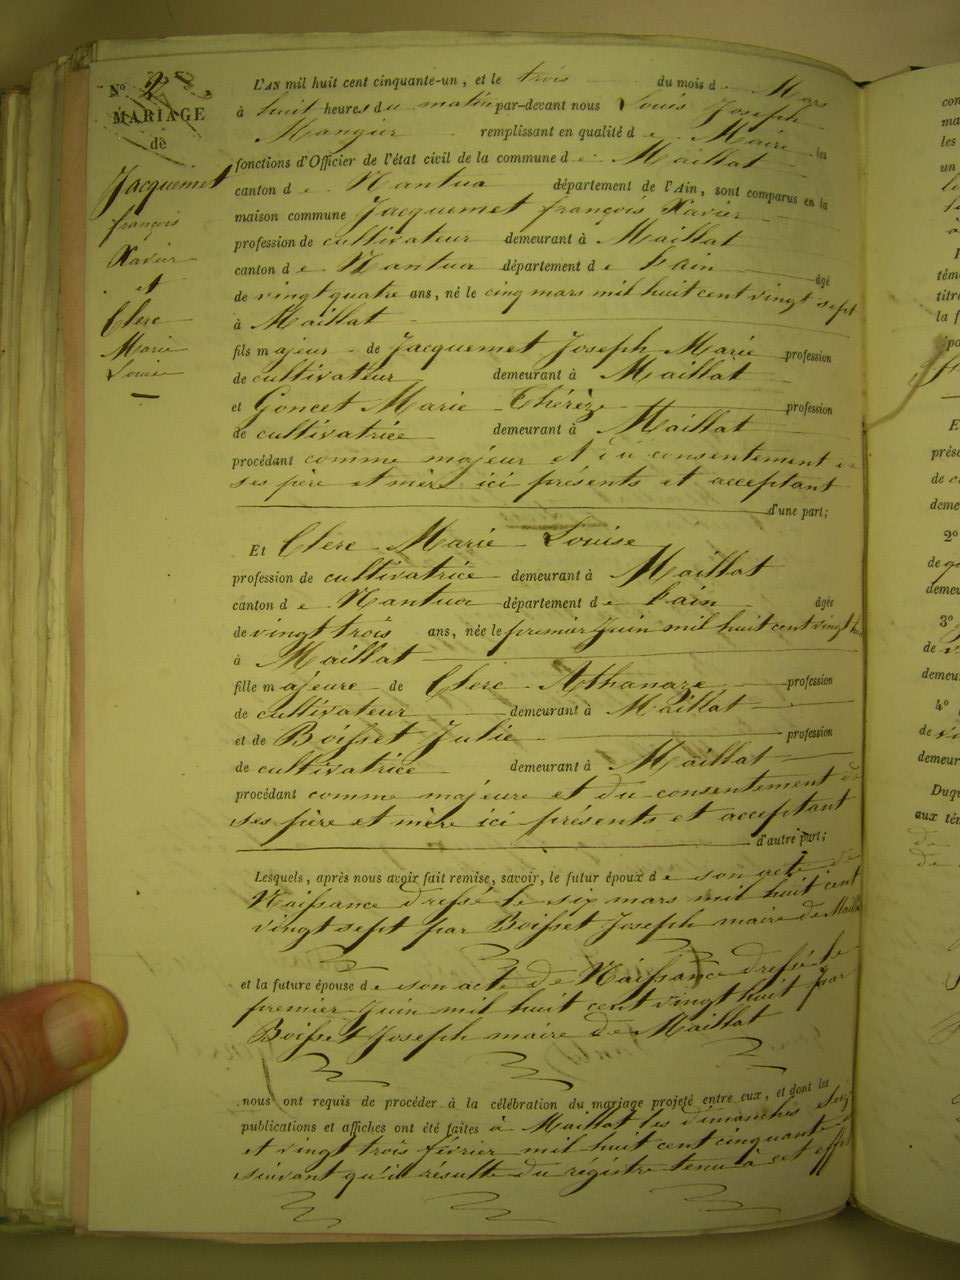 N° 2
MARIAGE
de
Jacquemet
françois
Xavier
et
Clerc
Marie
Louise
L'AN mil huit cent cinquante-un, et le trois du mois de Mars
à huit heures du matin par-devant nous Louis Joseph
Mangier remplissant en qualité de Maire les
fonctions d'Officier de l'état civil de la commune de Maillat
canton de Nantua département de l'Ain, sont comparus en la
maison commune Jacquemet françois Xavier
profession de cultivateur demeurant à Maillat
canton de Nantua département de l'ain âgé
de vingt quatre ans, né le cinq mars mil huit cent vingt sept
à Maillat
fils majeur de Jacquemet Joseph Marie profession
de cultivateur demeurant à Maillat
et Goncet Marie Thérèze profession
de cultivatrice demeurant à Maillat
procédant comme majeur et du consentement de
ses père et mère ici présents et acceptant
d'une part;
Et Clerc Marie Louise
profession de cultivatrice demeurant à Maillat
canton de Nantua département de l'ain âgée
de vingt trois ans, née le premier Juin mil huit cent vingt huit
à Maillat
fille majeure de Clerc Athanaze profession
de cultivateur demeurant à Maillat
et de Boisset Julie profession
de cultivatrice demeurant à Maillat
procédant comme majeure et du consentement de
ses père et mère ici présents et acceptant
d'autre part;
Lesquels, après nous avoir fait remise, savoir, le futur époux de son acte de
Naissance dressé le six mars mil huit cent
vingt sept par Boisset Joseph maire de Maillat
et la future épouse de son acte de Naissance dressé le
premier Juin mil huit cent vingt huit par
Boisset Joseph maire de Maillat
nous ont requis de procéder à la célébration du mariage projeté entre eux, et dont les
publications et affiches ont été faites à Maillat les dimanches seize
et vingt trois février mil huit cent cinquante un
suivant qu'il résulte du régistre tenu à cet effet